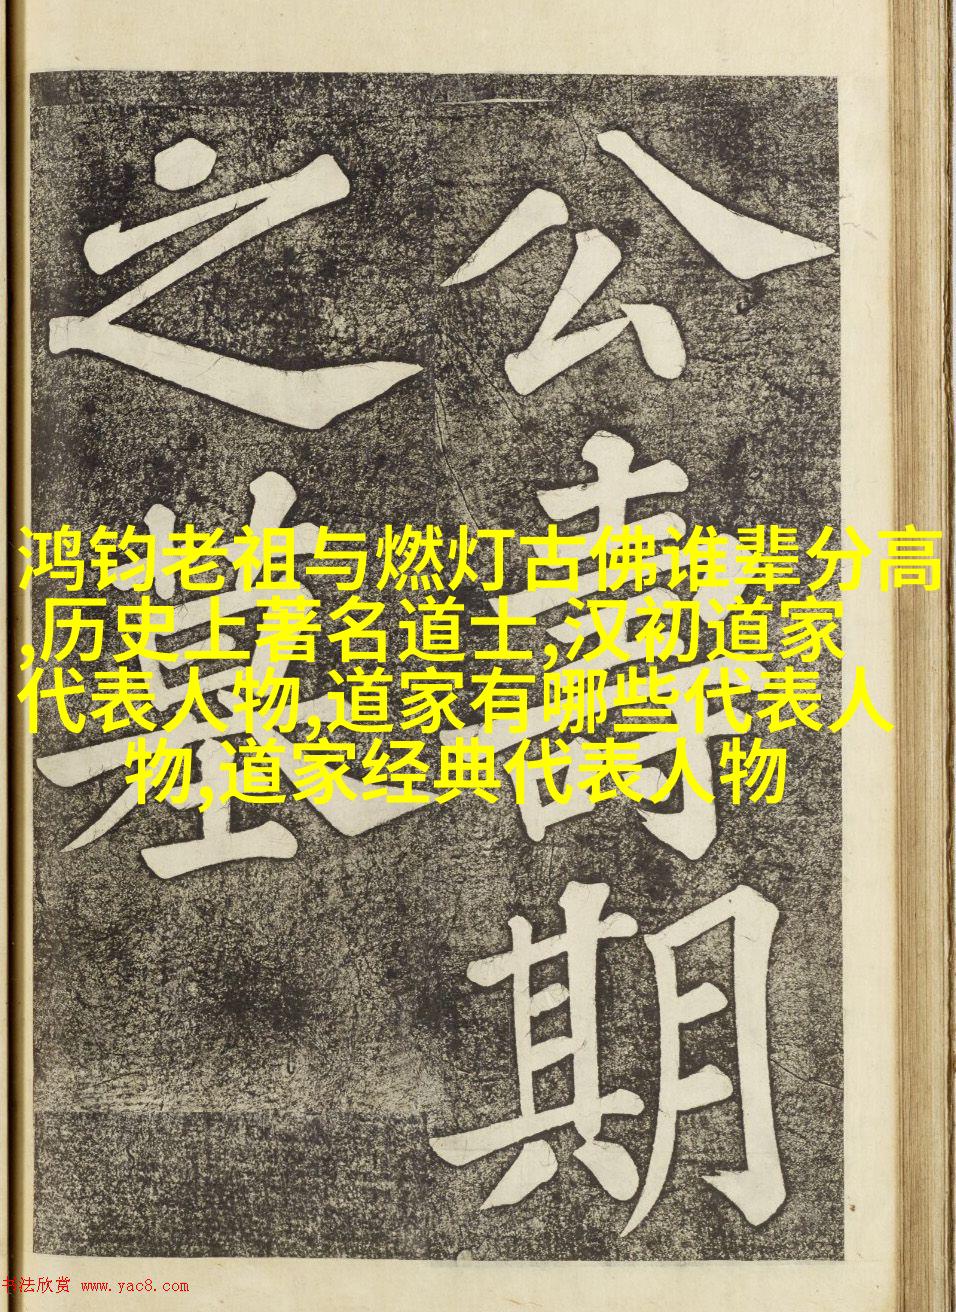 公壽期
之墓
鸿钧老祖与燃灯古佛谁辈分高
,历史上著名道士,汉初道家
代表人物,道家有哪些代表人
物,道家经典代表人物
书法欣赏 www.yac8.com